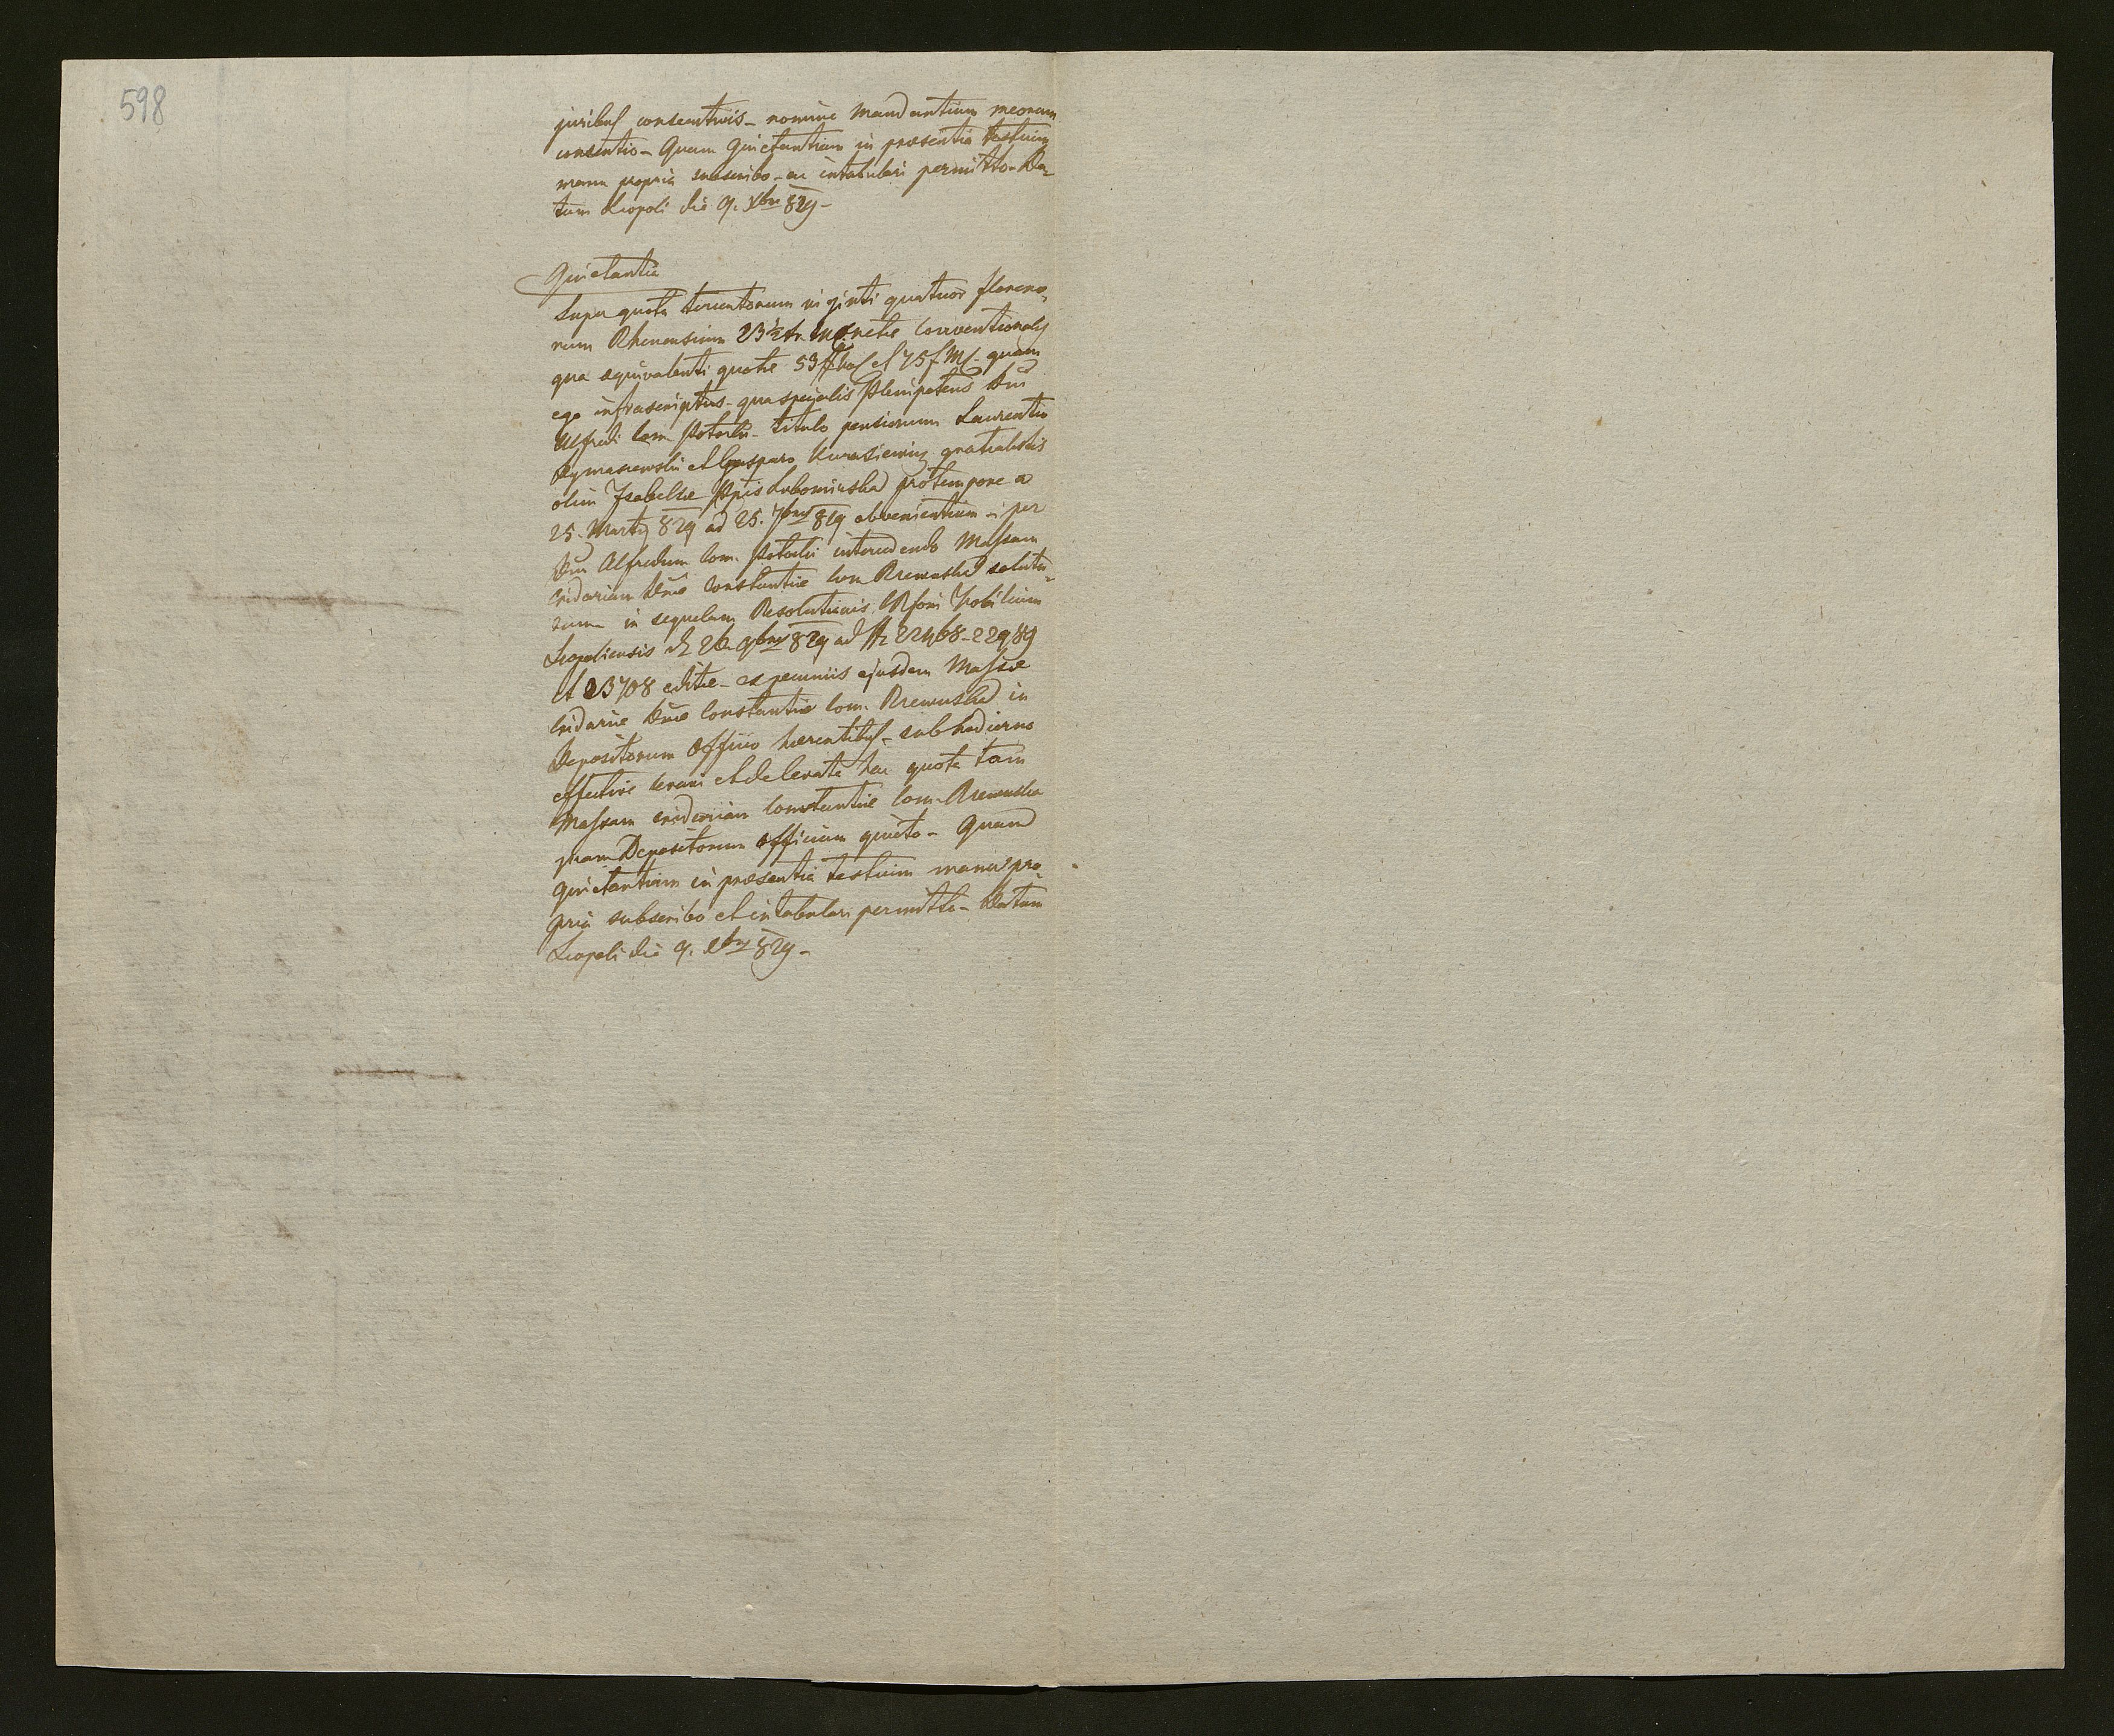 598
juribus consecutivis – nomine Mandantium meorum
consentio – Quam Quietantiam in praesentia testium
manu propria subscribo – ac intabulari permitto – Da-
tum Leopoli die 9. Xbr 829 –
Quietantia
Super quota trecentorum viginti quatuor floreno-
rum Rhenensium 23 ½ xr. monetae Conventionalis
qua aequivalenti quotae et 75 f quam
ego infrascriptus – qua specialis Plenipotens Dni
Alfredi Com. Potocki – titulo pensionum Laurentio
et Gasparo gratialistis
olim Isabellae Ppis Lubomirska pro tempore a
25. Martij 829 ad 25. 7bris 829 obvenientium – per
Dnum Alfredum Com. Potocki intercedendo Massam
Cridariam Dnae Constantiae Com. Rzewuska solutu-
rum in sequelam Resolutionis CRFori Nobilium
Leopoliensis dt 26. 9bris 829 ad Nr 22468 – 22989
et 23708 editae – ex pecuniis ejusdem Massae
Cridariae Dnae Constantiae Com. Rzewuska in
Depositorum Officio haerentibus – sub hodierno
effective levavi et de levata hac quota tam
Massam cridariam Constantiae Com. Rzewuska
quam Depositorum Officium quieto – Quam
Quietantiam in praesentia testium manu pro-
pria subscribo et intabulari permitto – Datum
Leopoli die 9. Xbr 829 –